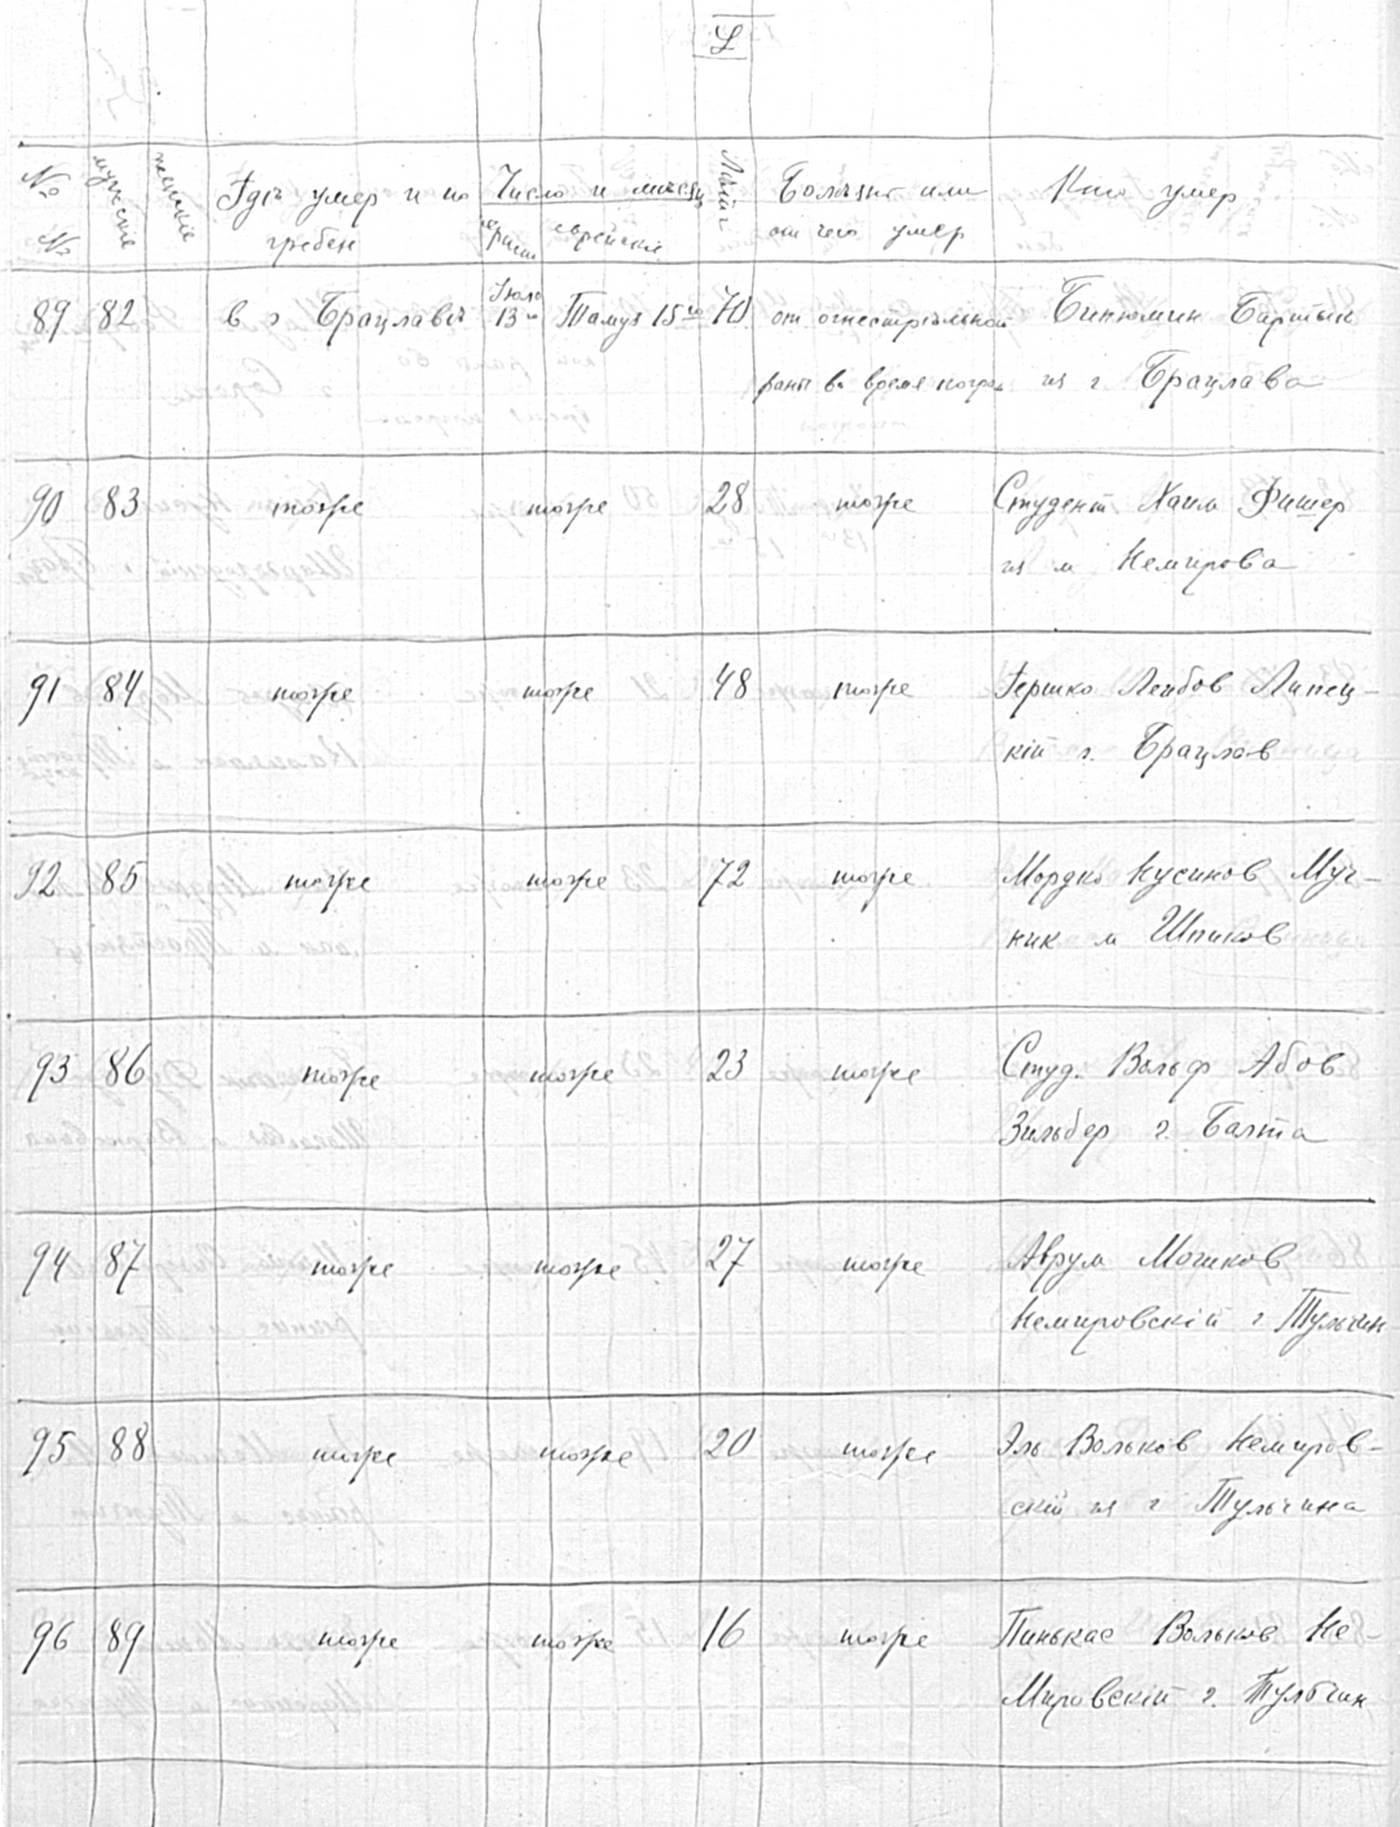 № №
мужскіе
женскіе
Гдѣ умер и по
гребен
Число и месяц
еврейскіе
Лѣта
Болѣзнь или
от чего умер
Кто умер
89 82 в г Брацлавѣ Іюля 13го Тамуз 15го 70 от огнестрѣльной Бинюмин Бартык
раны во время погром из г. Брацлава
90 83 тоже тоже 28 тоже Студент Хаим Фишер
из м Немирова
91 84 тоже тоже 48 тоже Гершко Лейбов Липец-
кій г. Брацлов
92 85 тоже тоже 72 тоже Мордко Кусинов Муч-
ник м Шпиков
93 86 тоже тоже 23 тоже Студ. Вольф Абов
Зильбер г. Балта
94 87 тоже тоже 27 тоже Аврум Мошков
Немировскій г Тульчин
95 88 тоже тоже 20 тоже Эль Вольков Немиров-
скій из г Тульчина
96 89 тоже тоже 16 тоже Пинькас Вольков Не-
мировскій г. Тульчин